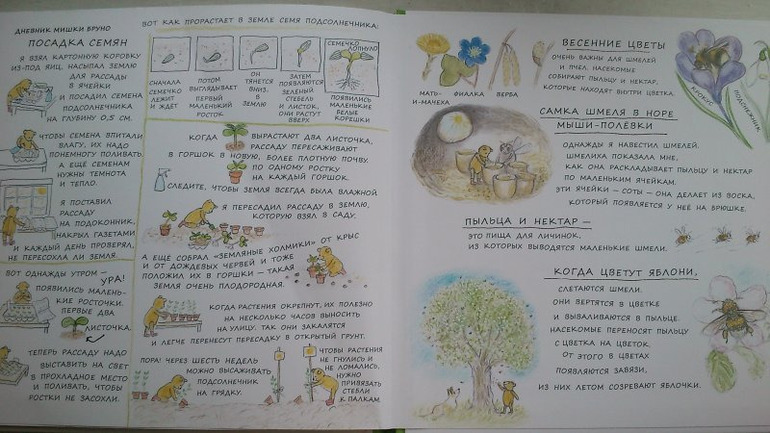 ДНЕВНИК МИШКИ БРУНО
ПОСАДКА СЕМЯН
Я ВЗЯЛ КАРТОННУЮ КОРОБКУ
ИЗ-ПОД ЯИЦ, НАСЫПАЛ ЗЕМЛЮ
ДЛЯ РАССАДЫ
В ЯЧЕЙКИ
И ПОСАДИЛ СЕМЕНА
ПОДСОЛНЕЧНИКА
НА ГЛУБИНУ 0,5 СМ.
ЧТОБЫ СЕМЕНА ВПИТАЛИ
ВЛАГУ, ИХ НАДО
ПОНЕМНОГУ ПОЛИВАТЬ.
А ЕЩЁ СЕМЕНАМ
НУЖНЫ ТЕМНОТА
И ТЕПЛО.
Я ПОСТАВИЛ
РАССАДУ
НА ПОДОКОННИК,
НАКРЫЛ ГАЗЕТАМИ
И КАЖДЫЙ ДЕНЬ ПРОВЕРЯЛ,
НЕ ПЕРЕСОХЛА ЛИ ЗЕМЛЯ.
ВОТ ОДНАЖДЫ УТРОМ –
УРА!
ПОЯВИЛИСЬ МАЛЕНЬ-
КИЕ РОСТОЧКИ.
ПЕРВЫЕ ДВА
ЛИСТОЧКА.
ТЕПЕРЬ РАССАДУ НАДО
ВЫСТАВИТЬ НА СВЕТ
В ПРОХЛАДНОЕ МЕСТО
И ПОЛИВАТЬ, ЧТОБЫ
РОСТКИ НЕ ЗАСОХЛИ.
ВОТ КАК ПРОРАСТАЕТ В ЗЕМЛЕ СЕМЯ ПОДСОЛНЕЧНИКА:
СНАЧАЛА
СЕМЕЧКО
ЛЕЖИТ
И ЖДЁТ
ПОТОМ
ВЫГЛЯДЫВАЕТ
ПЕРВЫЙ
МАЛЕНЬКИЙ
РОСТОК
ОН
ТЯНЕТСЯ
ВНИЗ,
В
ЗЕМЛЮ
ЗАТЕМ
ПОЯВЛЯЮТСЯ
ЗЕЛЁНЫЙ
СТЕБЕЛЬ
И ЛИСТОК,
ОНИ РАСТУТ
ВВЕРХ
СЕМЕЧКО
ЛОПНУЛО
ПОЯВИЛИСЬ
МАЛЕНЬКИЕ
БЕЛЫЕ
КОРЕШКИ
КОГДА ВЫРАСТАЮТ ДВА ЛИСТОЧКА,
РАССАДУ ПЕРЕСАЖИВАЮТ
В ГОРШОК В НОВУЮ, БОЛЕЕ ПЛОТНУЮ ПОЧВУ.
ПО ОДНОМУ РОСТКУ
НА КАЖДЫЙ ГОРШОК.
СЛЕДИТЕ, ЧТОБЫ ЗЕМЛЯ ВСЕГДА БЫЛА ВЛАЖНОЙ
Я ПЕРЕСАДИЛ РАССАДУ В ЗЕМЛЮ,
КОТОРУЮ ВЗЯЛ В САДУ.
А ЕЩЁ СОБРАЛ «ЗЕМЛЯНЫЕ ХОЛМИКИ» ОТ КРЫС
И ОТ ДОЖДЕВЫХ ЧЕРВЕЙ И ТОЖЕ
ПОЛОЖИЛ ИХ В ГОРШКИ – ТАКАЯ
ЗЕМЛЯ ОЧЕНЬ ПЛОДОРОДНАЯ.
КОГДА РАСТЕНИЯ ОКРЕПНУТ, ИХ ПОЛЕЗНО
НА НЕСКОЛЬКО ЧАСОВ ВЫНОСИТЬ
НА УЛИЦУ. ТАК ОНИ ЗАКАЛЯТСЯ
И ЛЕГЧЕ ПЕРЕНЕСУТ ПЕРЕСАДКУ В ОТКРЫТЫЙ ГРУНТ.
ПОРА! ЧЕРЕЗ ШЕСТЬ НЕДЕЛЬ
МОЖНО ВЫСАЖИВАТЬ
ПОДСОЛНЕЧНИК
НА ГРЯДКУ.
ЧТОБЫ РАСТЕНИЯ
НЕ ГНУЛИСЬ И
НЕ ЛОМАЛИСЬ,
НУЖНО
ПРИВЯЗАТЬ
СТЕБЛИ
К ПАЛКАМ.
МАТЬ-
И-МАЧЕХА
ФИАЛКА
ВЕРБА
ВЕСЕННИЕ ЦВЕТЫ
ОЧЕНЬ ВАЖНЫ ДЛЯ ШМЕЛЕЙ
И ПЧЁЛ. НАСЕКОМЫЕ
СОБИРАЮТ ПЫЛЬЦУ И НЕКТАР,
КОТОРЫЕ НАХОДЯТ ВНУТРИ ЦВЕТКА.
КРОКУС
ПОДСНЕЖНИК
САМКА ШМЕЛЯ В НОРЕ
МЫШИ-ПОЛЁВКИ
ОДНАЖДЫ Я НАВЕСТИЛ ШМЕЛЕЙ.
ШМЕЛИХА ПОКАЗАЛА МНЕ,
КАК ОНА РАСКЛАДЫВАЕТ ПЫЛЬЦУ И НЕКТАР
ПО МАЛЕНЬКИМ ЯЧЕЙКАМ.
ЭТИ ЯЧЕЙКИ – СОТЫ – ОНА ДЕЛАЕТ ИЗ ВОСКА,
КОТОРЫЙ ПОЯВЛЯЕТСЯ У НЕЁ НА БРЮШКЕ.
ПЫЛЬЦА И НЕКТАР –
ЭТО ПИЩА ДЛЯ ЛИЧИНОК,
ИЗ КОТОРЫХ ВЫВОДЯТСЯ МАЛЕНЬКИЕ ШМЕЛИ.
КОГДА ЦВЕТУТ ЯБЛОНИ,
СЛЕТАЮТСЯ ШМЕЛИ.
ОНИ ВЕРТЯТСЯ В ЦВЕТКЕ
И ВЫВАЛИВАЮТСЯ В ПЫЛЬЦЕ.
НАСЕКОМЫЕ ПЕРЕНОСЯТ ПЫЛЬЦУ
С ЦВЕТКА НА ЦВЕТОК.
ОТ ЭТОГО В ЦВЕТАХ
ПОЯВЛЯЮТСЯ ЗАВЯЗИ,
ИЗ НИХ ЛЕТОМ СОЗРЕВАЮТ ЯБЛОЧКИ.